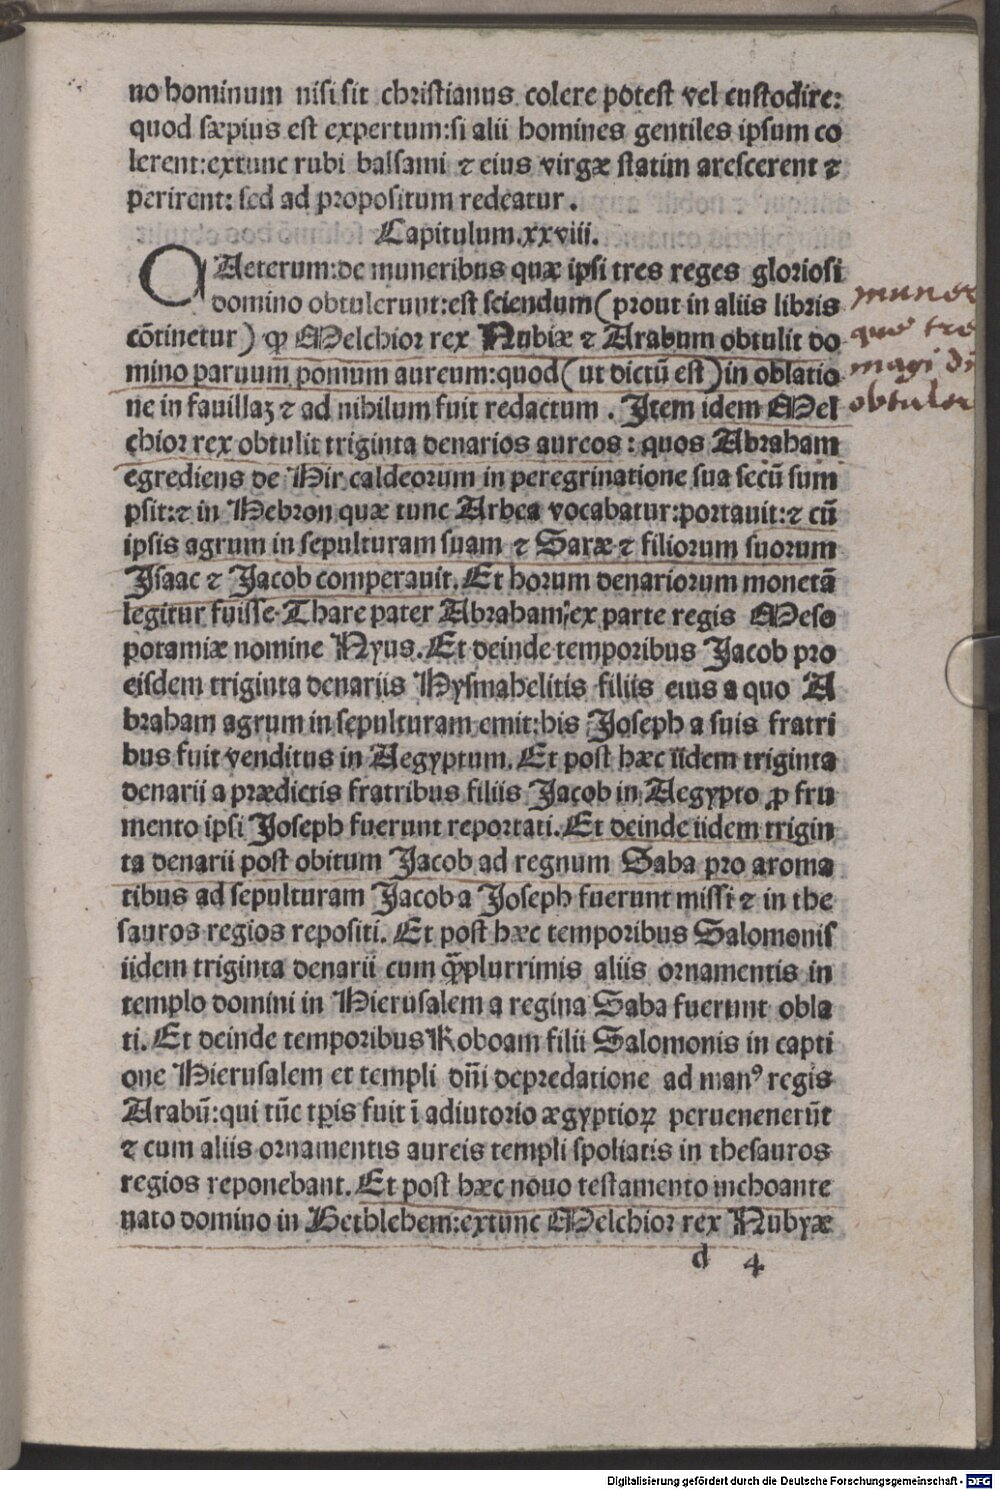 no hominum nisi sit christianus colere potest vel custodire:
quod sæpius est expertum:si alii homines gentiles ipsum co
lerent:extunc rubi balsami ⁊ eius virgæ statim arescerent ⁊
perirent: sed ad propositum redeatur.
Capitulum.xxviii.
CAeterum:de muneribus quæ ipsi tres reges gloriosi
domino obtulerunt:est sciendum(prout in aliis libris
cōtinetur) ꝙ Melchior rex Nubiæ ⁊ Arabum obtulit do
mino paruum pomum aureum:quod(ut dictū est)in oblatio
ne in fauillaꝫ ⁊ ad nihilum fuit redactum. Item idem Mel
chior rex obtulit triginta denarios aureos: quos Abraham
egrediens de Hir caldeorum in peregrinatione sua secū sum
psit:⁊ in Hebron quæ tunc Arbea vocabatur:portauit:⁊ cū
ipsis agrum in sepulturam suam ⁊ Saræ ⁊ filiorum suorum
Isaac ⁊ Jacob comperauit. Et horum denariorum monetā
legitur fuisse Thare pater Abraham:ex parte regis Meso
potamiæ nomine Nyus. Et deinde temporibus Jacob pro
eisdem triginta denariis Hysmahelitis filiis eius a quo A
braham agrum in sepulturam emit:his Joseph a suis fratri
bus fuit venditus in Aegyptum. Et post hæc iidem triginta
denarii a prædictis fratribus filiis Jacob in Aegypto ꝓ fru
mento ipsi Joseph fuerunt reportati. Et deinde iidem trigin
ta denarii post obitum Jacob ad regnum Saba pro aroma
tibus ad sepulturam Jacob a Joseph fuerunt missi ⁊ in the
sauros regios repositi. Et post hæc temporibus Salomonis
iidem triginta denarii cum qm̄plurrimis aliis ornamentis in
templo domini in Hierusalem a regina Saba fuerunt obla
ti. Et deinde temporibus Roboam filii Salomonis in capti
one Hierusalem et templi dn̄i depredatione ad manꝰ regis
Arabū:qui tūc tp̄is fuit ī adiutorio ægyptioꝝ peruenenerūt
⁊ cum aliis ornamentis aureis templi spoliatis in thesauros
regios reponebant. Et post hæc nouo testamento inchoante
nato domino in Bethlehem:extunc Melchior rex Nubyæ
d 4
muner
que tre
magi dn̄
obtuler
Digitalisierung gefördert durch die Deutsche Forschungsgemeinschaft - DFG